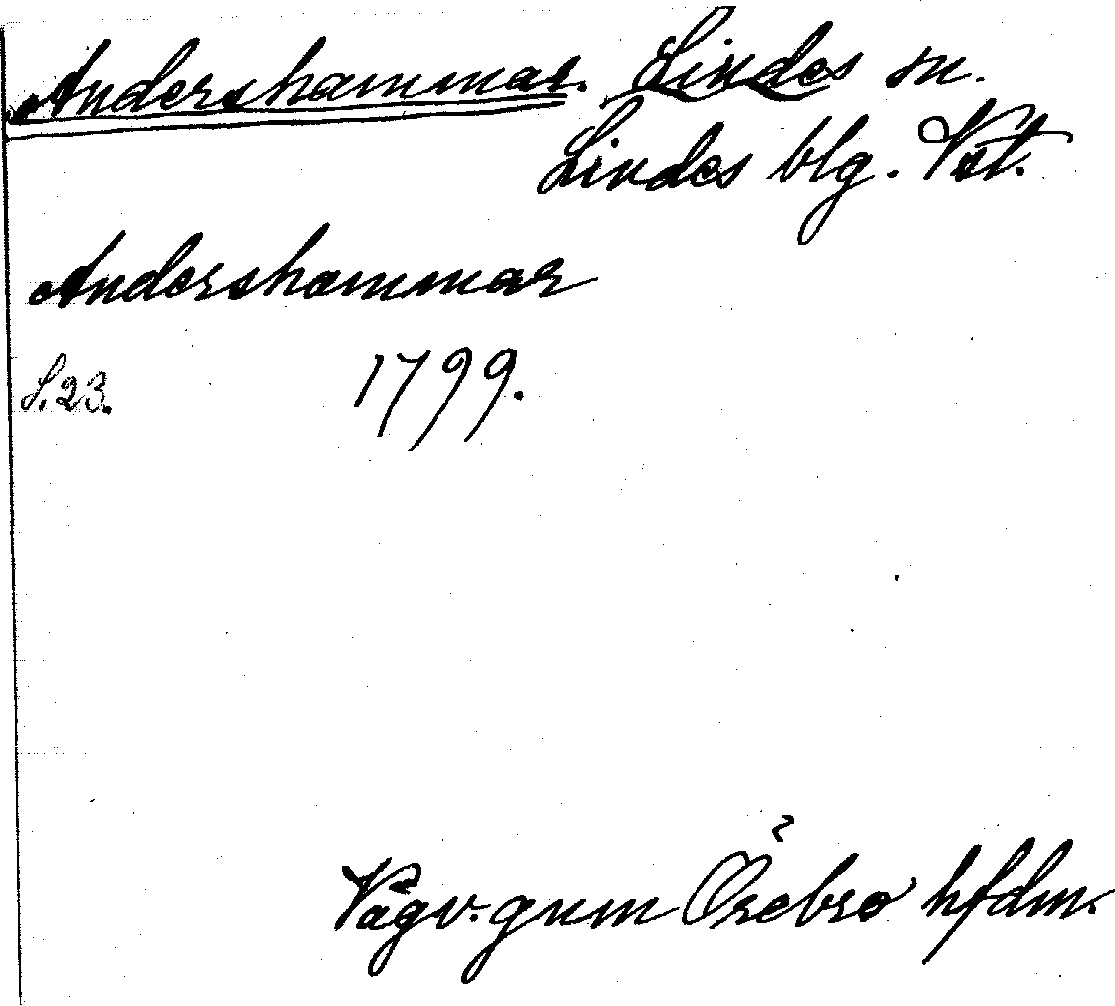 Andershammar. Lindes sn.
Lindes blg. Vst.
Andershammar
S. 23. 1799.
Vägv. gnm Örebro hfdm.